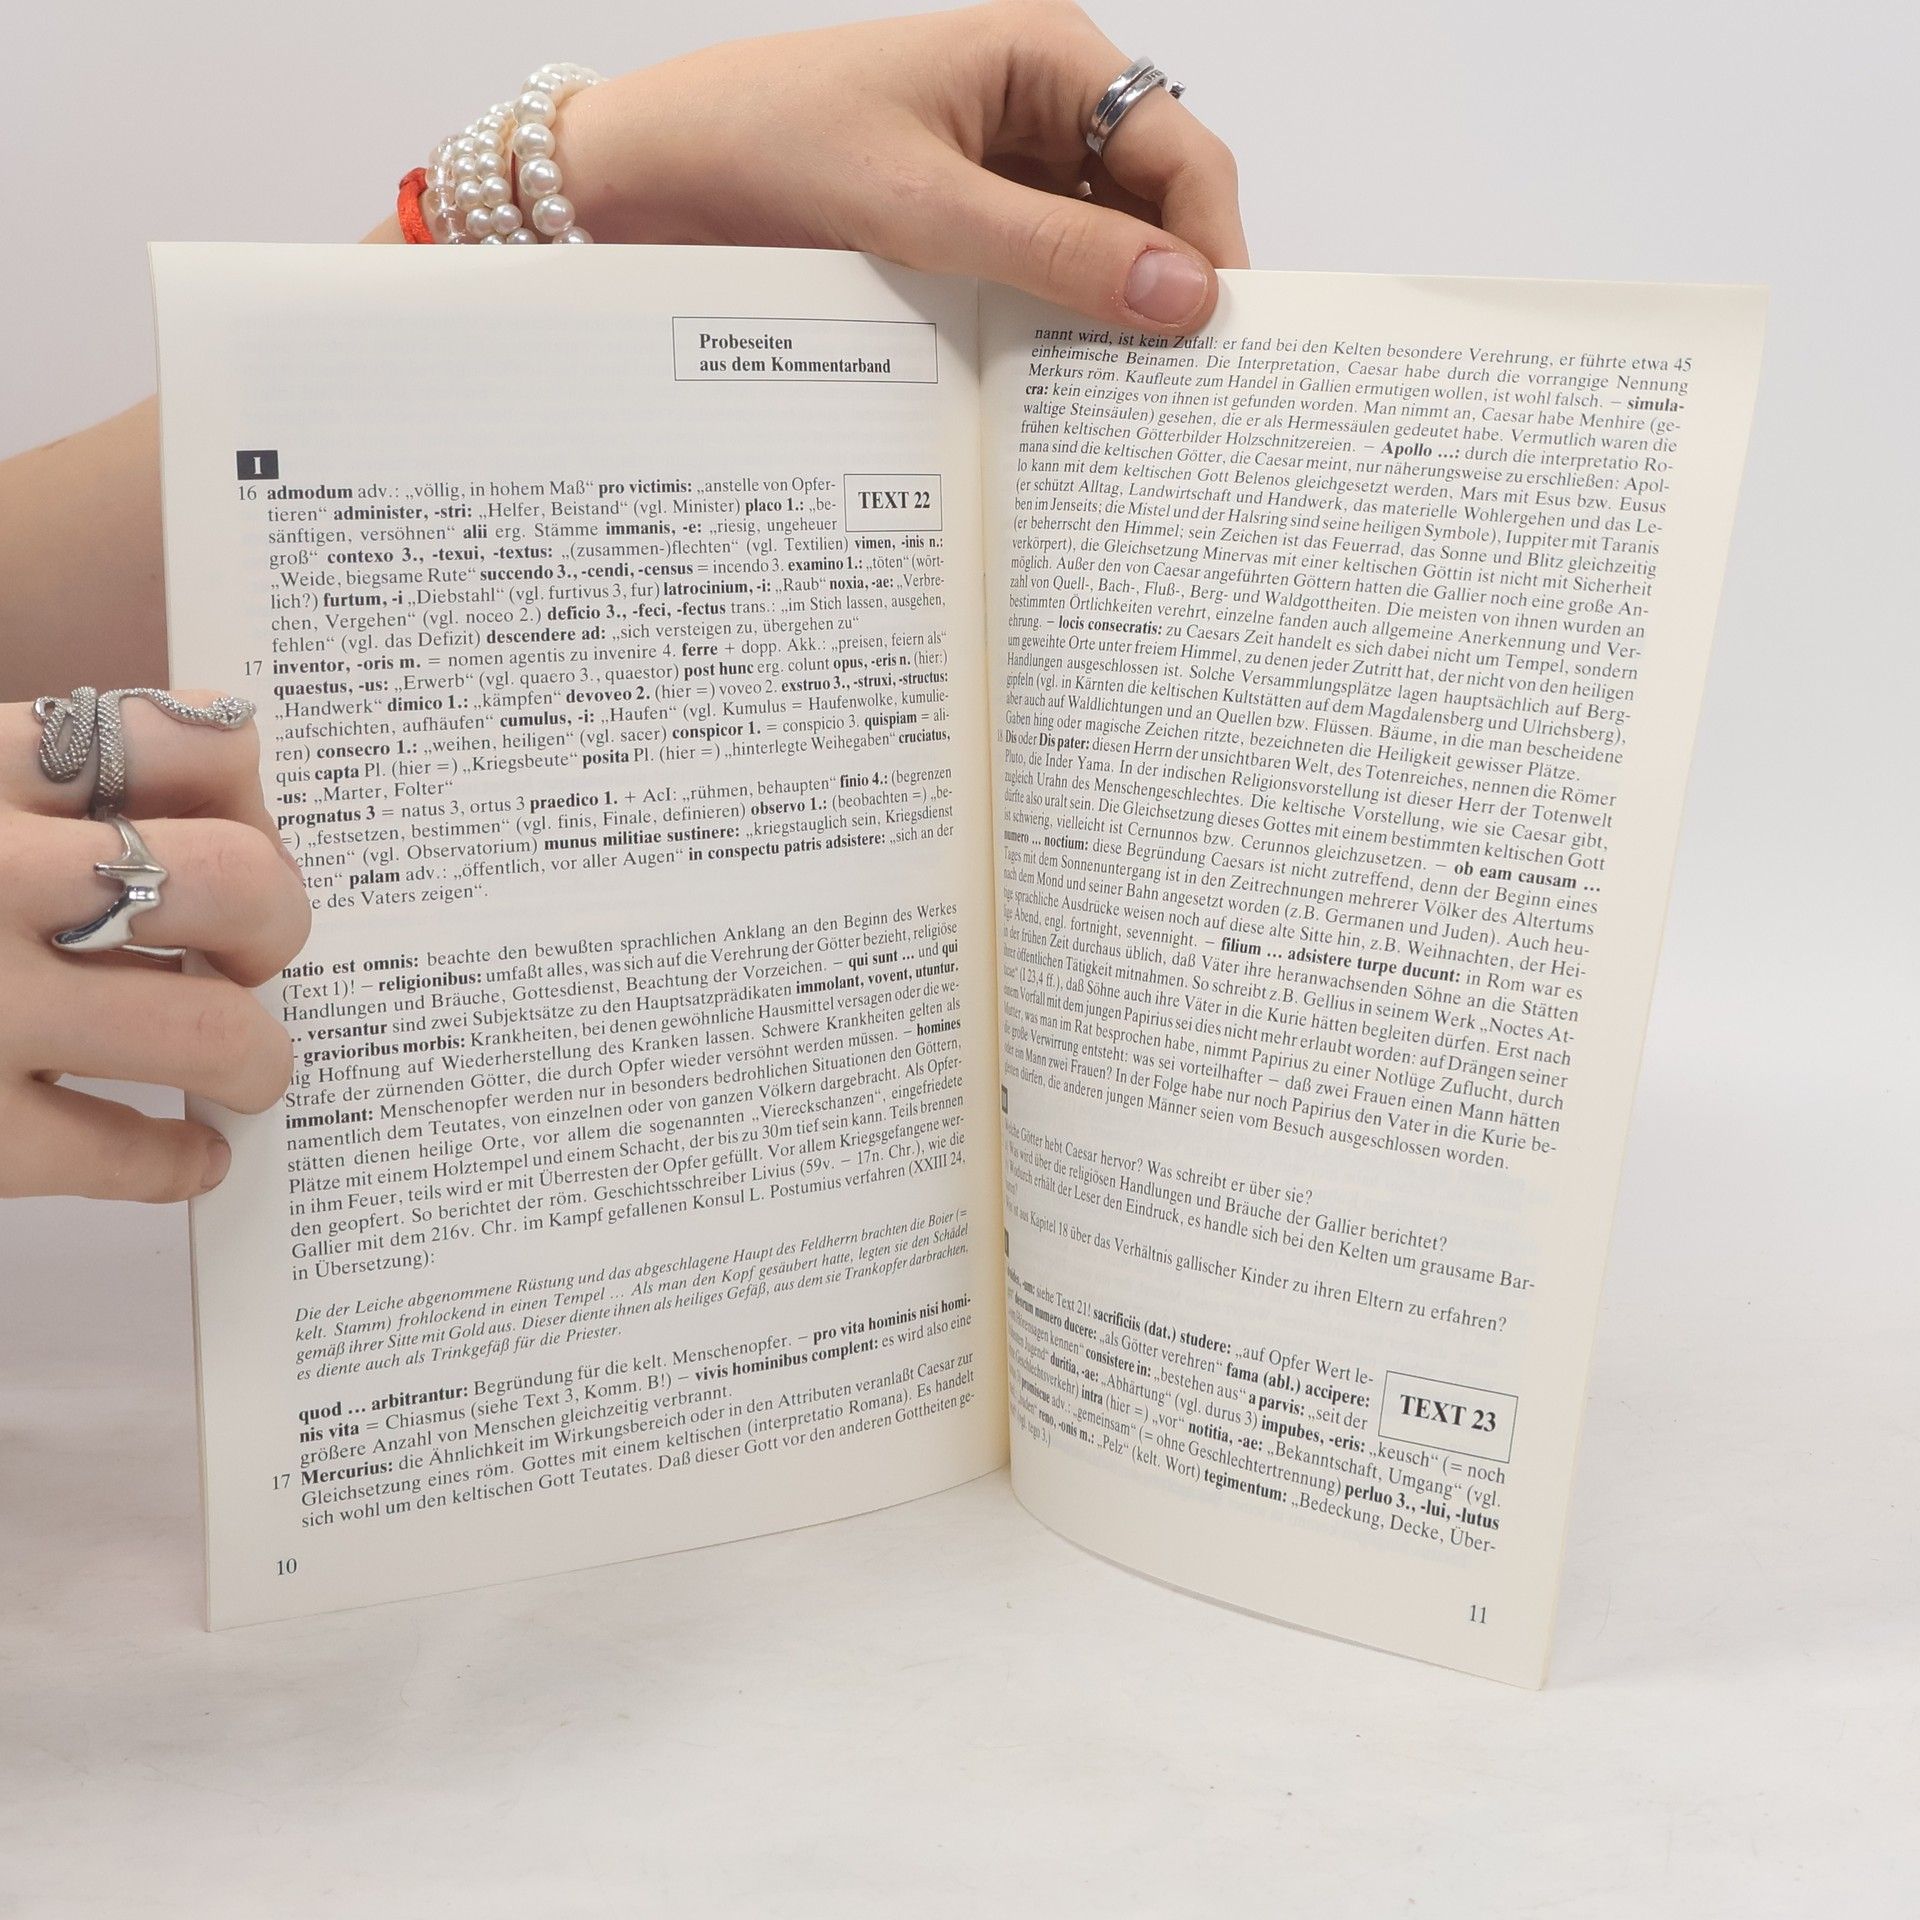 Probeseiten
aus dem Kommentarband
I
16 admodum adv.: „völlig, in hohem Maß“ pro victimis: „anstelle von Opfer-
tieren“ administer, -stri: „Helfer, Beistand“ (vgl. Minister) placo 1.: „be-
sänftigen, versöhnen“ alii erg. Stämme immanis, -e: „riesig, ungeheuer
TEXT 22
groß“ contexo 3., -texui, -textus: „(zusammen-)flechten“ (vgl. Textilien) vimen, -inis n.:
„Weide, biegsame Rute“ succendo 3., -cendi, -census = incendo 3. examino 1.: „töten“ (wört-
lich?) furtum, -i „Diebstahl“ (vgl. furtivus 3, fur) latrocinium, -i: „Raub“ noxia, -ae: „Verbre-
chen, Vergehen“ (vgl. noceo 2.) deficio 3., -feci, -fectus trans.: „im Stich lassen, ausgehen,
fehlen“ (vgl. das Defizit) descendere ad: „sich versteigen zu, übergehen zu“
17 inventor, -oris m. = nomen agentis zu invenire 4. ferre + dopp. Akk.: „preisen, feiern als“
quaestus, -us: „Erwerb“ (vgl. quaero 3., quaestor) post hunc erg. colunt opus, -eris n. (hier:)
„Handwerk“ dimico 1.: „kämpfen“ devoveo 2. (hier =) voveo 2. exstruo 3., -struxi, -structus:
„aufschichten, aufhäufen“ cumulus, -i: „Haufen“ (vgl. Kumulus = Haufenwolke, kumulie-
ren) consecro 1.: „weihen, heiligen“ (vgl. sacer) conspicor 1. = conspicio 3. quispiam = ali-
quis capta Pl. (hier =) „Kriegsbeute“ posita Pl. (hier =) „hinterlegte Weihegaben“ cruciatus,
-us: „Marter, Folter“
prognatus 3 = natus 3, ortus 3 praedico 1. + AcI: „rühmen, behaupten“ finio 4.: (begrenzen
=) „festsetzen, bestimmen“ (vgl. finis, Finale, definieren) observo 1.: (beobachten =) „be-
chnen“ (vgl. Observatorium) munus militiae sustinere: „kriegstauglich sein, Kriegsdienst
sten“ palam adv.: „öffentlich, vor aller Augen“ in conspectu patris adsistere: „sich an der
e des Vaters zeigen“.
natio est omnis: beachte den bewußten sprachlichen Anklang an den Beginn des Werkes
(Text 1)! – religionibus: umfaßt alles, was sich auf die Verehrung der Götter bezieht, religiöse
Handlungen und Bräuche, Gottesdienst, Beachtung der Vorzeichen. – qui sunt ... und qui
... versantur sind zwei Subjektsätze zu den Hauptsatzprädikaten immolant, vovent, utuntur.
– gravioribus morbis: Krankheiten, bei denen gewöhnliche Hausmittel versagen oder die we-
nig Hoffnung auf Wiederherstellung des Kranken lassen. Schwere Krankheiten gelten als
Strafe der zürnenden Götter, die durch Opfer wieder versöhnt werden müssen. – homines
immolant: Menschenopfer werden nur in besonders bedrohlichen Situationen den Göttern,
namentlich dem Teutates, von einzelnen oder von ganzen Völkern dargebracht. Als Opfer-
stätten dienen heilige Orte, vor allem die sogenannten „Viereckschanzen“, eingefriedete
Plätze mit einem Holztempel und einem Schacht, der bis zu 30m tief sein kann. Teils brennen
in ihm Feuer, teils wird er mit Überresten der Opfer gefüllt. Vor allem Kriegsgefangene wer-
den geopfert. So berichtet der röm. Geschichtsschreiber Livius (59v. – 17n. Chr.), wie die
Gallier mit dem 216v. Chr. im Kampf gefallenen Konsul L. Postumius verfahren (XXIII 24,
in Übersetzung):
Die der Leiche abgenommene Rüstung und das abgeschlagene Haupt des Feldherrn brachten die Boier (=
kelt. Stamm) frohlockend in einen Tempel ... Als man den Kopf gesäubert hatte, legten sie den Schädel
gemäß ihrer Sitte mit Gold aus. Dieser diente ihnen als heiliges Gefäß, aus dem sie Trankopfer darbrachten,
es diente auch als Trinkgefäß für die Priester.
quod ... arbitrantur: Begründung für die kelt. Menschenopfer. – pro vita hominis nisi homi-
nis vita = Chiasmus (siehe Text 3, Komm. B!) – vivis hominibus complent: es wird also eine
größere Anzahl von Menschen gleichzeitig verbrannt.
17 Mercurius: die Ähnlichkeit im Wirkungsbereich oder in den Attributen veranlaßt Caesar zur
Gleichsetzung eines röm. Gottes mit einem keltischen (interpretatio Romana). Es handelt
sich wohl um den keltischen Gott Teutates. Daß dieser Gott vor den anderen Gottheiten ge-
10
nannt wird, ist kein Zufall: er fand bei den Kelten besondere Verehrung, er führte etwa 45
einheimische Beinamen. Die Interpretation, Caesar habe durch die vorrangige Nennung
Merkurs röm. Kaufleute zum Handel in Gallien ermutigen wollen, ist wohl falsch. – simula-
cra: kein einziges von ihnen ist gefunden worden. Man nimmt an, Caesar habe Menhire (ge-
waltige Steinsäulen) gesehen, die er als Hermessäulen gedeutet habe. Vermutlich waren die
frühen keltischen Götterbilder Holzschnitzereien. – Apollo ...: durch die interpretatio Ro-
mana sind die keltischen Götter, die Caesar meint, nur näherungsweise zu erschließen: Apol-
lo kann mit dem keltischen Gott Belenos gleichgesetzt werden, Mars mit Esus bzw. Eusus
(er schützt Alltag, Landwirtschaft und Handwerk, das materielle Wohlergehen und das Le-
ben im Jenseits; die Mistel und der Halsring sind seine heiligen Symbole), Iuppiter mit Taranis
(er beherrscht den Himmel; sein Zeichen ist das Feuerrad, das Sonne und Blitz gleichzeitig
verkörpert), die Gleichsetzung Minervas mit einer keltischen Göttin ist nicht mit Sicherheit
möglich. Außer den von Caesar angeführten Göttern hatten die Gallier noch eine große An-
zahl von Quell-, Bach-, Fluß-, Berg- und Waldgottheiten. Die meisten von ihnen wurden an
bestimmten Örtlichkeiten verehrt, einzelne fanden auch allgemeine Anerkennung und Ver-
ehrung. – locis consecratis: zu Caesars Zeit handelt es sich dabei nicht um Tempel, sondern
um geweihte Orte unter freiem Himmel, zu denen jeder Zutritt hat, der nicht von den heiligen
Handlungen ausgeschlossen ist. Solche Versammlungsplätze lagen hauptsächlich auf Berg-
gipfeln (vgl. in Kärnten die keltischen Kultstätten auf dem Magdalensberg und Ulrichsberg),
aber auch auf Waldlichtungen und an Quellen bzw. Flüssen. Bäume, in die man bescheidene
Gaben hing oder magische Zeichen ritzte, bezeichneten die Heiligkeit gewisser Plätze.
18 Dis oder Dis pater: diesen Herrn der unsichtbaren Welt, des Totenreiches, nennen die Römer
Pluto, die Inder Yama. In der indischen Religionsvorstellung ist dieser Herr der Totenwelt
zugleich Urahn des Menschengeschlechtes. Die keltische Vorstellung, wie sie Caesar gibt,
dürfte also uralt sein. Die Gleichsetzung dieses Gottes mit einem bestimmten keltischen Gott
ist schwierig, vielleicht ist Cernunnos bzw. Cerunnos gleichzusetzen. – ob eam causam ...
numero ... noctium: diese Begründung Caesars ist nicht zutreffend, denn der Beginn eines
Tages mit dem Sonnenuntergang ist in den Zeitrechnungen mehrerer Völker des Altertums
nach dem Mond und seiner Bahn angesetzt worden (z.B. Germanen und Juden). Auch heu-
tige sprachliche Ausdrücke weisen noch auf diese alte Sitte hin, z.B. Weihnachten, der Hei-
lige Abend, engl. fortnight, sevennight. – filium ... adsistere turpe ducunt: in Rom war es
in der frühen Zeit durchaus üblich, daß Väter ihre heranwachsenden Söhne an die Stätten
ihrer öffentlichen Tätigkeit mitnahmen. So schreibt z.B. Gellius in seinem Werk „Noctes At-
ticae“ (I 23,4 ff.), daß Söhne auch ihre Väter in die Kurie hätten begleiten dürfen. Erst nach
einem Vorfall mit dem jungen Papirius sei dies nicht mehr erlaubt worden: auf Drängen seiner
Mutter, was man im Rat besprochen habe, nimmt Papirius zu einer Notlüge Zuflucht, durch
die große Verwirrung entsteht: was sei vorteilhafter – daß zwei Frauen einen Mann hätten
oder ein Mann zwei Frauen? In der Folge habe nur noch Papirius den Vater in die Kurie be-
gleiten dürfen, die anderen jungen Männer seien vom Besuch ausgeschlossen worden.
Welche Götter hebt Caesar hervor? Was schreibt er über sie?
Was wird über die religiösen Handlungen und Bräuche der Gallier berichtet?
Wodurch erhält der Leser den Eindruck, es handle sich bei den Kelten um grausame Bar-
ist aus Kapitel 18 über das Verhältnis gallischer Kinder zu ihren Eltern zu erfahren?
siehe Text 21! sacrificiis (dat.) studere: „auf Opfer Wert le-
deorum numero ducere: „als Götter verehren“ fama (abl.) accipere:
Hörensagen kennen“ consistere in: „bestehen aus“ a parvis: „seit der
Jugend“ duritia, -ae: „Abhärtung“ (vgl. durus 3) impubes, -eris: „keusch“ (= noch
Geschlechtsverkehr) intra (hier =) „vor“ notitia, -ae: „Bekanntschaft, Umgang“ (vgl.
promiscue adv.: „gemeinsam“ (= ohne Geschlechtertrennung) perluo 3., -lui, -lutus
reno, -onis m.: „Pelz“ (kelt. Wort) tegimentum: „Bedeckung, Decke, Über-
tego 3.)
TEXT 23
11